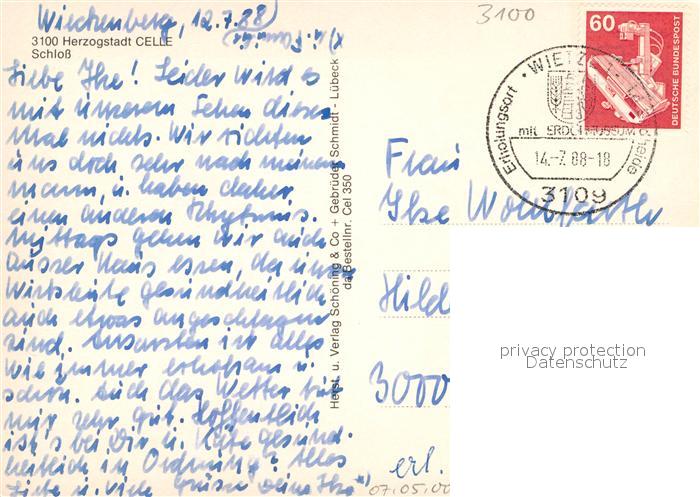 Wieckenberg, 12.7.88
3100 Herzogstadt CELLE
Schloß
Liebe Ilse! Leider wird es
mit unserem Sehen dieses
Mal nichts. Wir richten
uns doch sehr nach meinem
Mann, u. haben daher
einen anderen Rhythmus.
Mittags gehen wir auch
ausser Haus essen, da unsere
Wirtsleute gesundheitlich
auch etwas angeschlagen
sind. Ansonsten ist alles
wie immer erholsam u.
schön. Auch das Wetter
mir sehr gut. Hoffentlich
ist's bei Dir u. Käte gesund-
heitlich in Ordnung? Alles
Liebe u. viele Grüße Deine
Herst. u. Verlag Schöning & Co + Gebrüder Schmidt - Lübeck
da Bestellnr. Cel 350
3100
60
DEUTSCHE BUNDESPOST
Erholungsort · WIETZE
mit ERDÖLMUSEUM
14.-7.88-18
3109
Frau
Ilse Wohlfarth
Hild
3000
erl.
07.05.00
privacy protection
Datenschutz